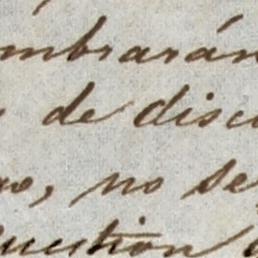 mbrarán
de discu
no se
Question